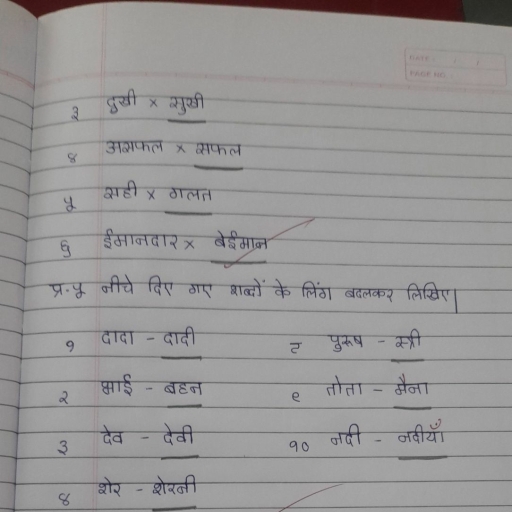 DATE: / /
PAGE NO.:
३ दुखी × सुखी
४ असफल × सफल
५ सही × गलत
६ ईमानदार × बेईमान
प्र.५ नीचे दिए गए शब्दों के लिंग बदलकर लिखिए|
१ दादा - दादी ८ पुरुष - स्त्री
२ भाई - बहन ९ तोता - मैना
३ देव - देवी १० नदी - नदीयाँ
४ शेर - शेरनी